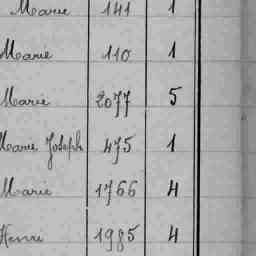 Marie 141 1
Marie 110 1
Marie 2077 5
Marie Joseph 475 1
Marie 1766 4
Henri 1985 4